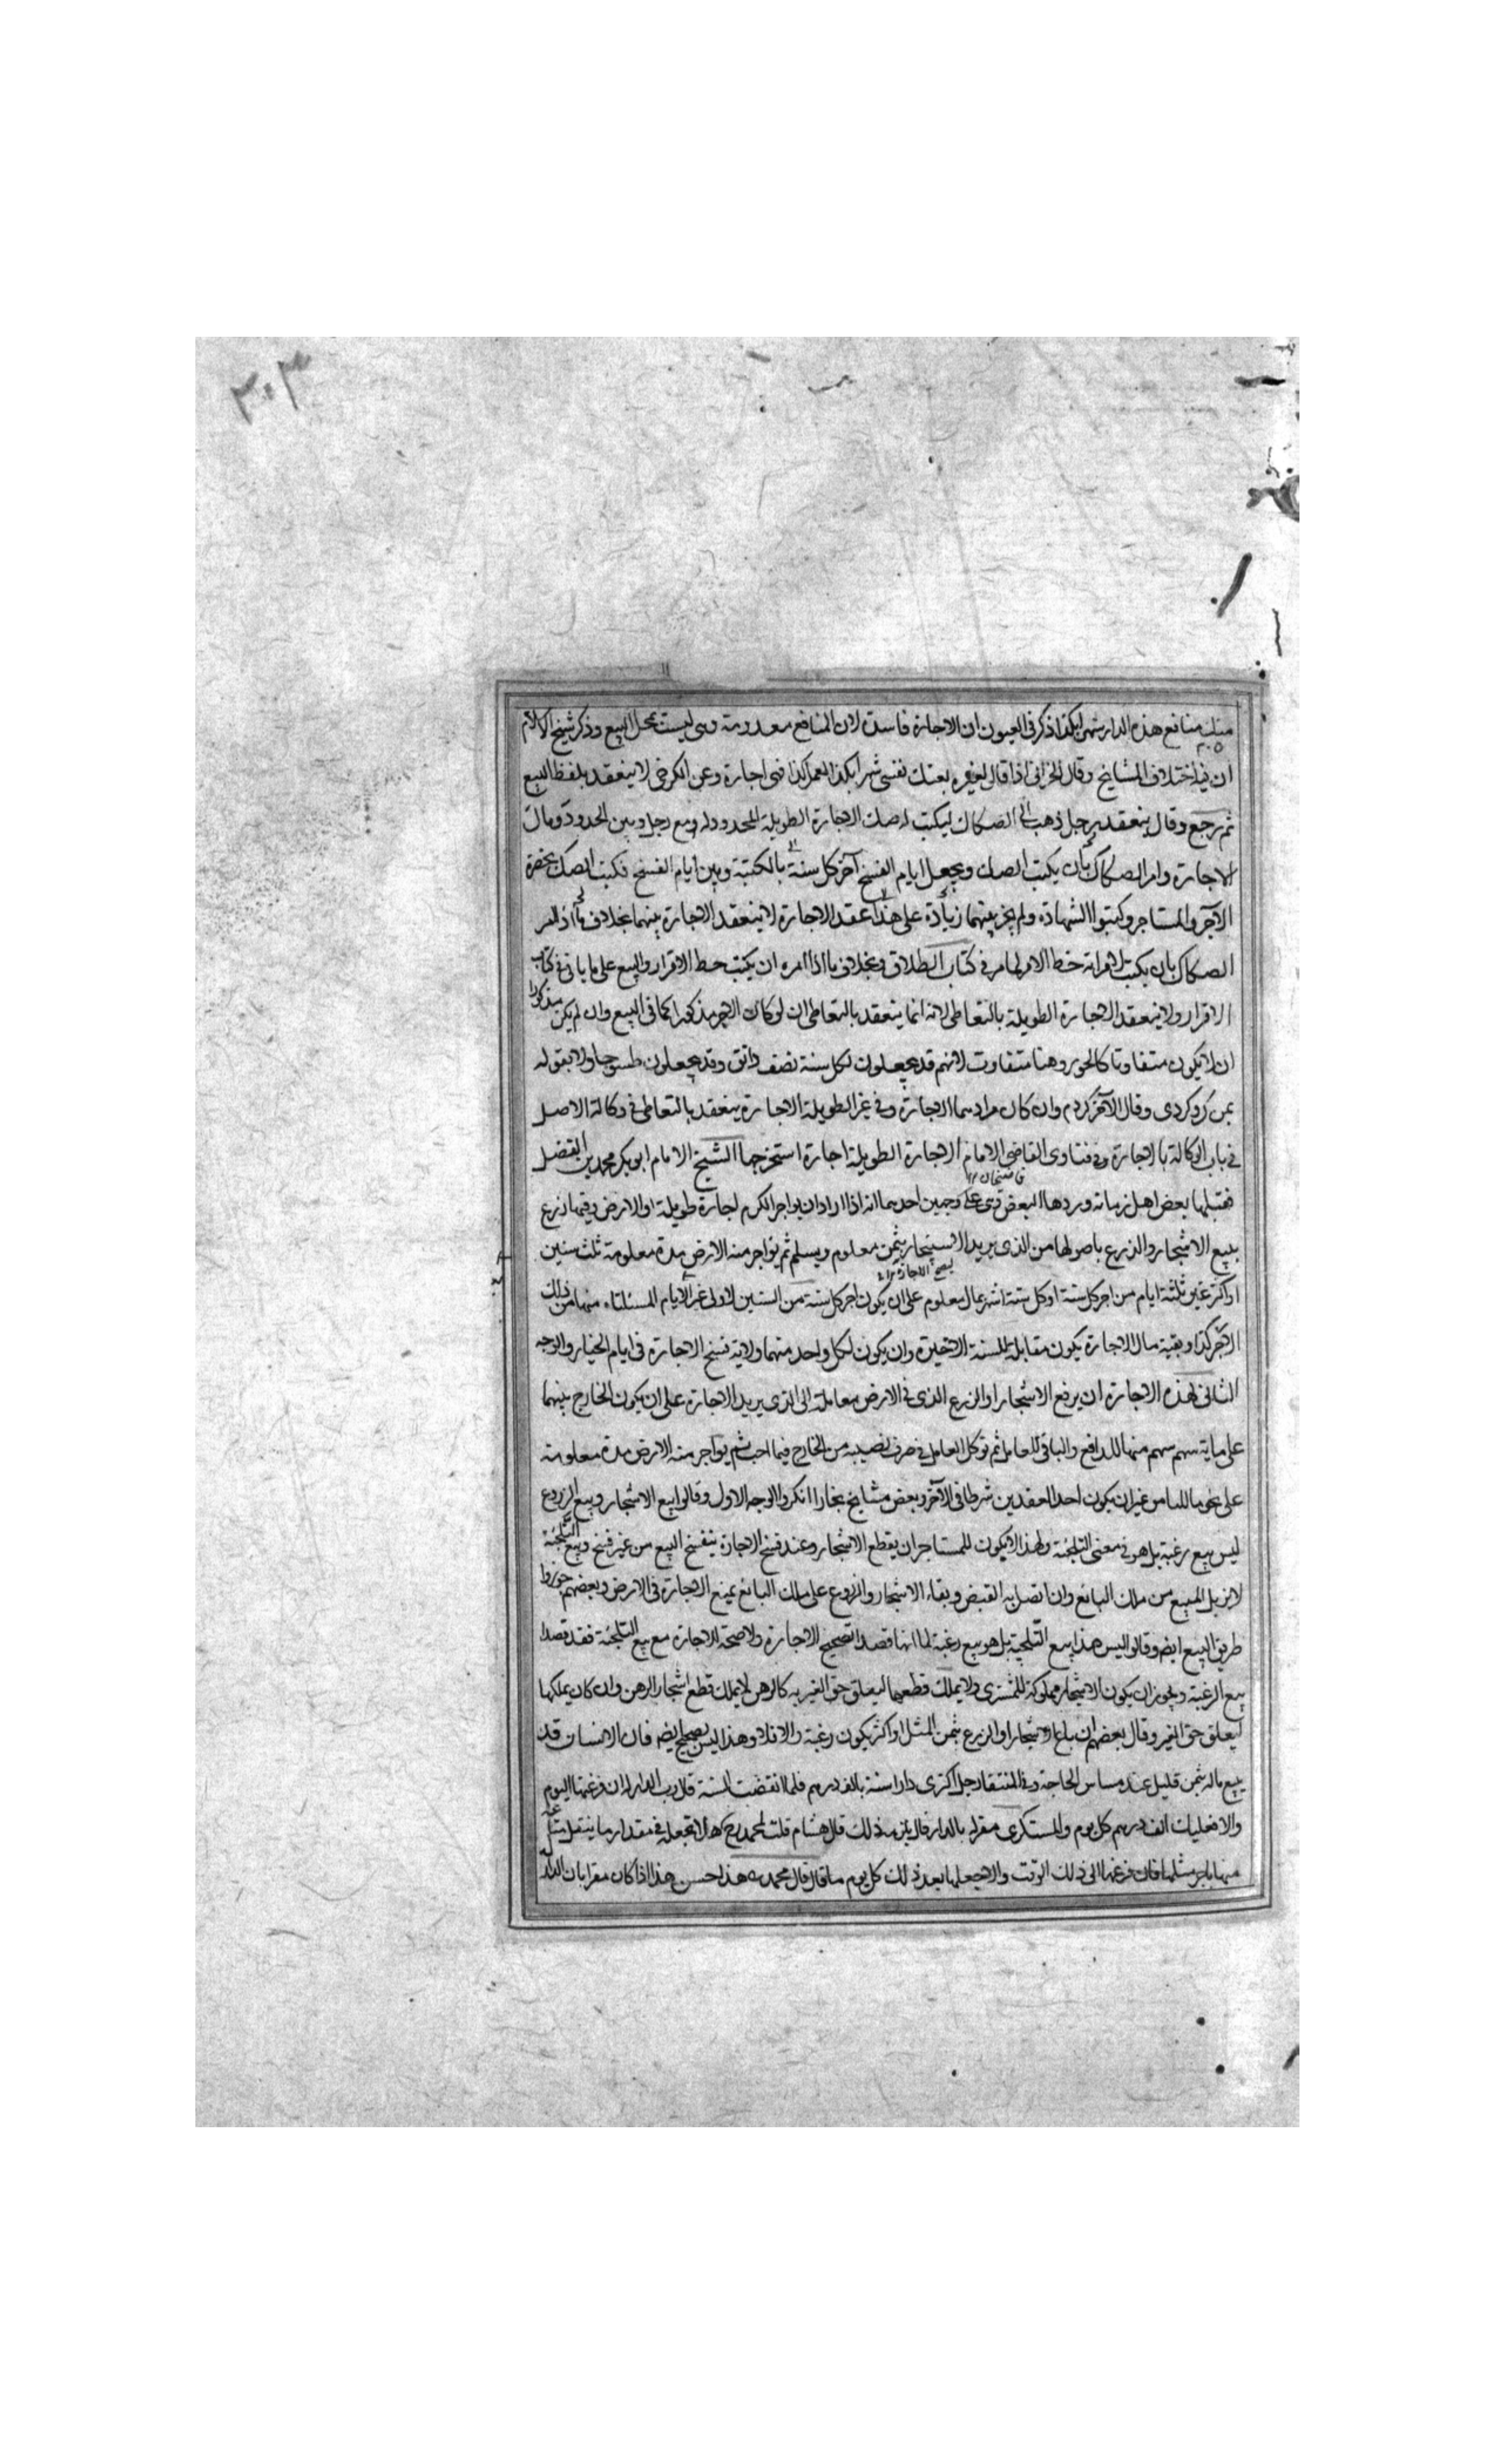 ٣٠٣
منك منافع هذه الدار شهرا بكذا ذكر في العيون ان الاجارة فاسدة لان المنافع معدومة وهي ليست بمحل البيع وذكر شيخ الاسلام
ان فيه اختلاف المشايخ وقال الحراني اذا قال لغيره بعتك نفسي شهرا بكذا لعمل كذا فهي اجارة وعن الكرخي لا ينعقد بلفظ البيع
ثم رجع وقال ينعقد رجل ذهب الى الصكاك ليكتب له صك الاجارة الطويلة المحدود له مع رجل وبين الحدود ومال
الاجارة وامر الصكاك بان يكتب الصك ويجعل ايام الفسخ آخر كل سنة بالكتبة وبين ايام الفسخ فكتب الصك بحضرة
الآجر والمستاجر وكتبوا الشهادة ولم يجز بينهما زيادة على هذا عقد الاجارة لا ينعقد الاجارة بينهما بخلاف ما اذا امر
الصكاك بان يكتب لامراته خط الامر لما مر في كتاب الطلاق وبخلاف ما اذا امره ان يكتب خط الاقرار والبيع على ما ياتي في كتاب
الاقرار ولا ينعقد الاجارة الطويلة بالتعاطي لانه انما ينعقد بالتعاطي ان لو كان الاجر مذكورا كما في البيع وان لم يكن مذكورا
ان لا يكون متفاوتا كالخبز وهنا متفاوت لانهم قد يجعلون لكل سنة نصف دانق وقد يجعلون طسوجا ولا بقوله
بمن كرو كردى وقال الآخر كردم وان كان مرادهما الاجارة وفي غير الطويلة الاجارة ينعقد بالتعاطي في وكالة الاصل
في باب الوكالة بالاجارة وفي فتاوى القاضي الامام الاجارة الطويلة اجارة استخرجها الشيخ الامام ابو بكر محمد بن الفضل
قاضيخان
فقبلها بعض اهل زمانه وردها البعض وهي على وجهين احدهما انه اذا اراد ان يواجر الكرم اجارة طويلة او الارض وفيها زرع
يبيع الاشجار والزرع باصولها من الذي يريد الاستيجار بثمن معلوم ويسلم ثم يواجر منه الارض مدة معلومة ثلث سنين
ليصح الاجارة
او اكثر غير ثلثة ايام من اخر كل سنة او كل ستة اشهر بمال معلوم على ان يكون اجر كل سنة من السنين الاولى غير الايام المستثناة منها من ذلك
الاجر كذا وبقية مال الاجارة يكون مقابلة للسنة الاخيرة وان يكون لكل واحد منهما ولاية فسخ الاجارة في ايام الخيار والوجه
الثاني لهذه الاجارة ان يرفع الاشجار او الزرع الذي في الارض معاملة الى الذي يريد الاجارة على ان يكون الخارج بينهما
على ماية سهم سهم منها للدافع والباقي للعامل ثم توكل العامل في صرف نصيبه من الخارج فيما احب ثم يواجر منه الارض مدة معلومة
على نحو ما للنا من غير ان يكون احد العقدين شرطا في الآخر وبعض مشايخ بخارا انكروا الوجه الاول وقالوا بيع الاشجار وبيع الزروع
ليس بيع رغبة بل هو في معنى التلجئة ولهذا لا يكون للمستاجر ان يقطع الاشجار وعند فسخ الاجارة ينفسخ البيع من غير فسخ وبيع التلجئة
لا يزيل المبيع من ملك البائع وان اتصل به القبض وبقاء الاشجار والزروع على ملك البائع يمنع الاجارة في الارض وبعضهم جوزوا
طريق البيع ايضا وقالوا ليس هذا بيع التلجية بل هو بيع رغبة لما انهما قصدا تصحيح الاجارة ولا صحة للاجارة مع بيع التلجئة فقد قصدا
بيع الرغبة ويجوز ان يكون الاشجار مملوكة للمشترى ولا يملك قطعها ليعلق حق الغير به كالرهن لا يملك قطع اشجار الرهن وان كان يملكها
ليعلق حق الغير وقال بعضهم ان باع الاشجار او الزرع بثمن المثل او اكثر يكون رغبة والا فلا وهذا ليس بصحيح ايضا فان الانسان قد
يبيع ماله بثمن قليل عند مساس الحاجة وفي المنتقا رجل اكترى دارا سنة بالف درهم فلما انقضت السنة قال رب الدار ان فرغتها اليوم
والا فعليك الف درهم كل يوم والمستكرى مقر له بالدار قال يلزمه ذلك قال هشام قلت لمحمد رح هلا تجعله في مقدار ما ينقل متاعه
منها باجر مثلها فان فرغها الى ذلك الوقت والا جعلها بعد ذلك كل يوم ما قال قال محمد رح هذا حسن هذا اذا كان مقرا بان الدار له